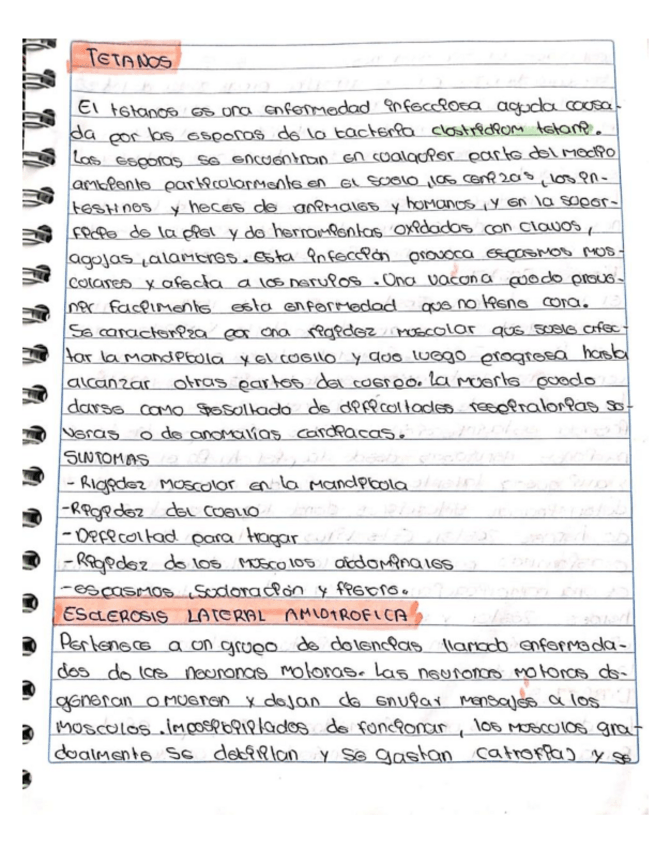 TETANOS
El tétanos es una enfermedad infecciosa aguda causa-
da por las esporas de la bacteria clostridium tetani.
Las esporas se encuentran en cualquier parte del medio
ambiente particularmente en el suelo, las cenizas, los in-
testinos y heces de animales y humanos, y en la super-
ficie de la piel y de herramientas oxidadas con clavos,
agujas, alambres. Esta infección provoca espasmos mus-
culares y afecta a los nervios. Una vacuna puede preve-
nir facilmente esta enfermedad que no tiene cura.
Se caracteriza por una rigidez muscular que suele afec-
tar la mandibula y el cuello y que luego progresa hasta
alcanzar otras partes del cuerpo. la muerte puede
darse como resultado de dificultades respiratorias se-
veras o de anomalías cardiacas.
SINTOMAS
- Rigidez muscular en la mandibula
- Rigidez del cuello
- Dificultad para tragar
- Rigidez de los musculos abdominales
- espasmos, sudoración y fiebre.
ESCLEROSIS LATERAL AMIOTROFICA
Pertenece a un grupo de dolencias llamado enfermeda-
des de las neuronas motoras. Las neuronas motoras de-
generan o mueren y dejan de enviar mensajes a los
musculos. imposibilitados de funcionar, los musculos gra-
dualmente se debilitan y se gastan (atrofia) y se